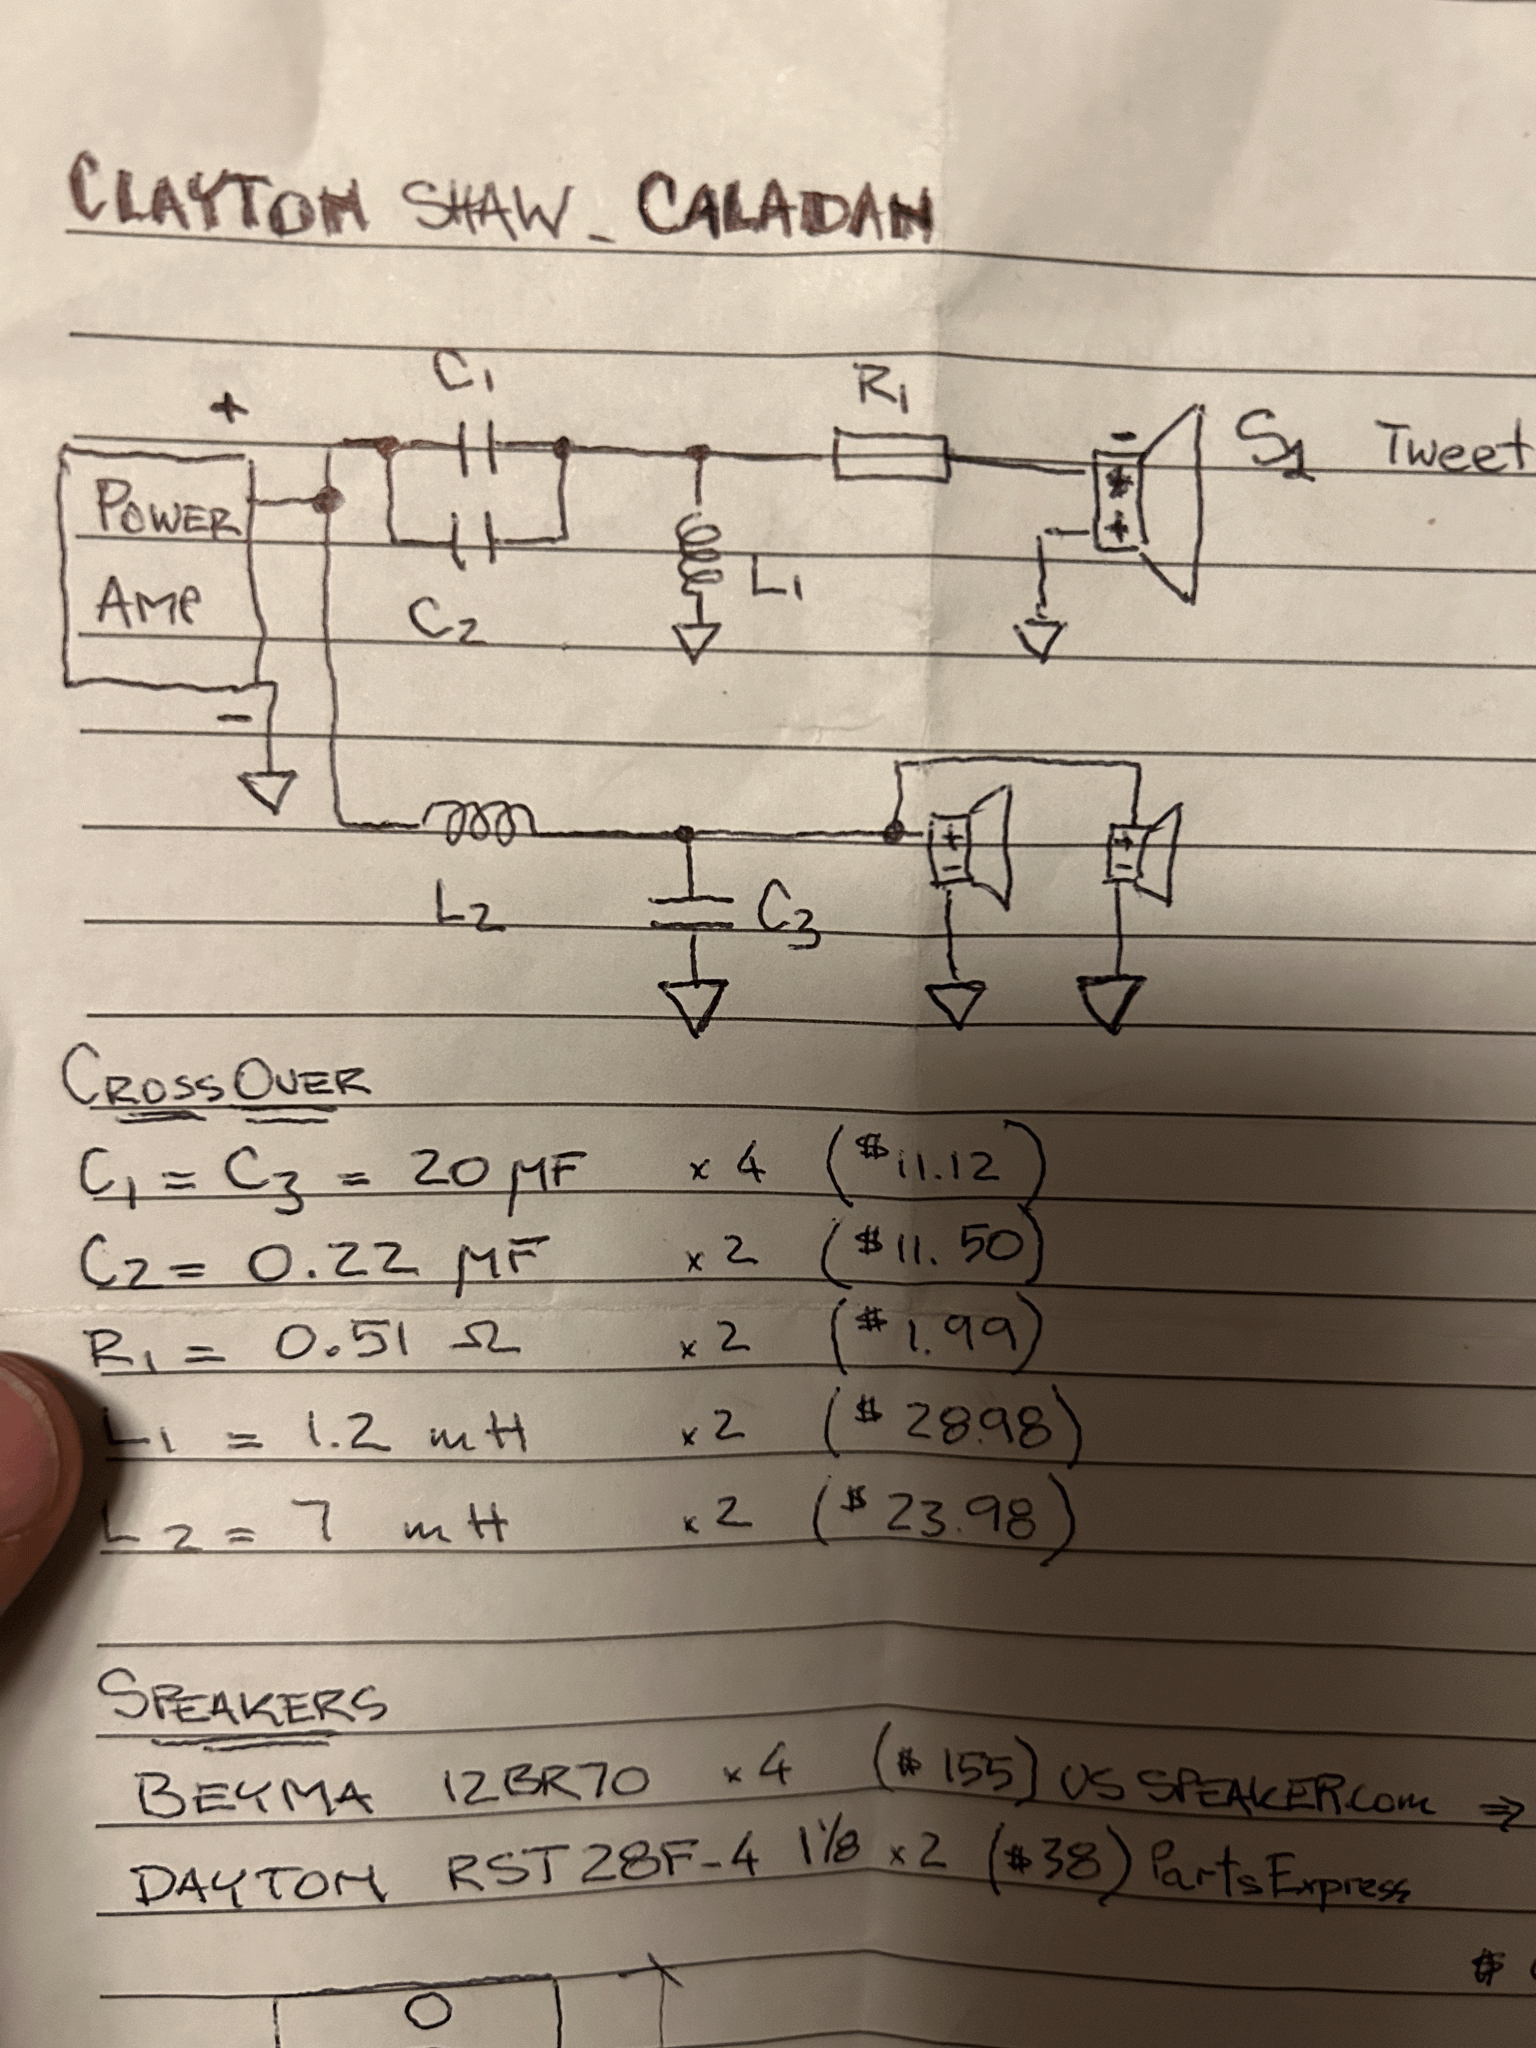 CLAYTON SHAW - CALADAN
+
C1
R1
POWER
AMP
-
C2
L1
-
+
S1 Tweet
L2
C3
+
-
+
-
CROSSOVER
C1 = C3 = 20 µF x 4 ($11.12)
C2 = 0.22 µF x 2 ($11.50)
R1 = 0.51 Ω x 2 ($1.99)
L1 = 1.2 mH x 2 ($28.98)
L2 = 7 mH x 2 ($23.98)
SPEAKERS
BEYMA 12BR70 x 4 ($155) US SPEAKER.com ⇒
DAYTON RST28F-4 1 1/8 x 2 ($38) PartsExpress
$